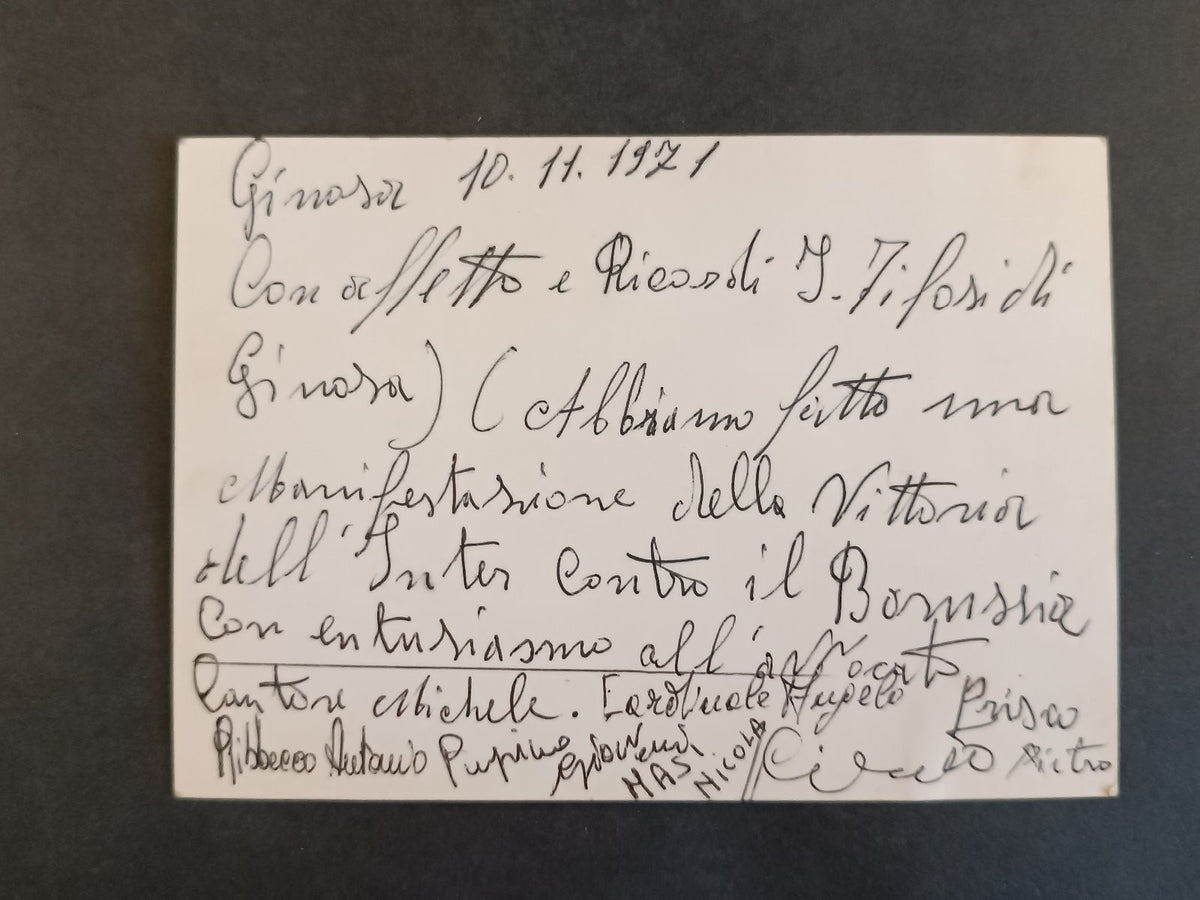 Ginosa 10.11.1971
Con affetto e Ricordi I. Tifosi di
Ginosa) (Abbiamo fatto una
Manifestazione della Vittoria
dell'Inter contro il Borussia
con entusiasmo all'avvocato
Prisco
Cantore Michele. Cardinale Angelo
Ribbecco Antonio Pupino Giovanni MAS NICOLA Pietro